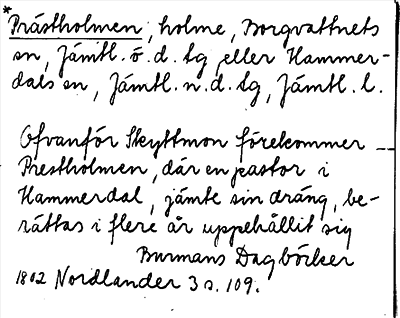 *Prästholmen, holme, Borgvattnets
sn, Jämtl. ö. d. tg eller Hammer-
dals sn, Jämtl. n. d. tg, Jämtl. l.
Ofvanför Skyttmon förekommer --
Prestholmen, där en pastor i
Hammerdal, jämte sin dräng, be-
rättas i flere år uppehållit sig
Burmans Dagböcker
1802 Nordlander 3 s. 109.